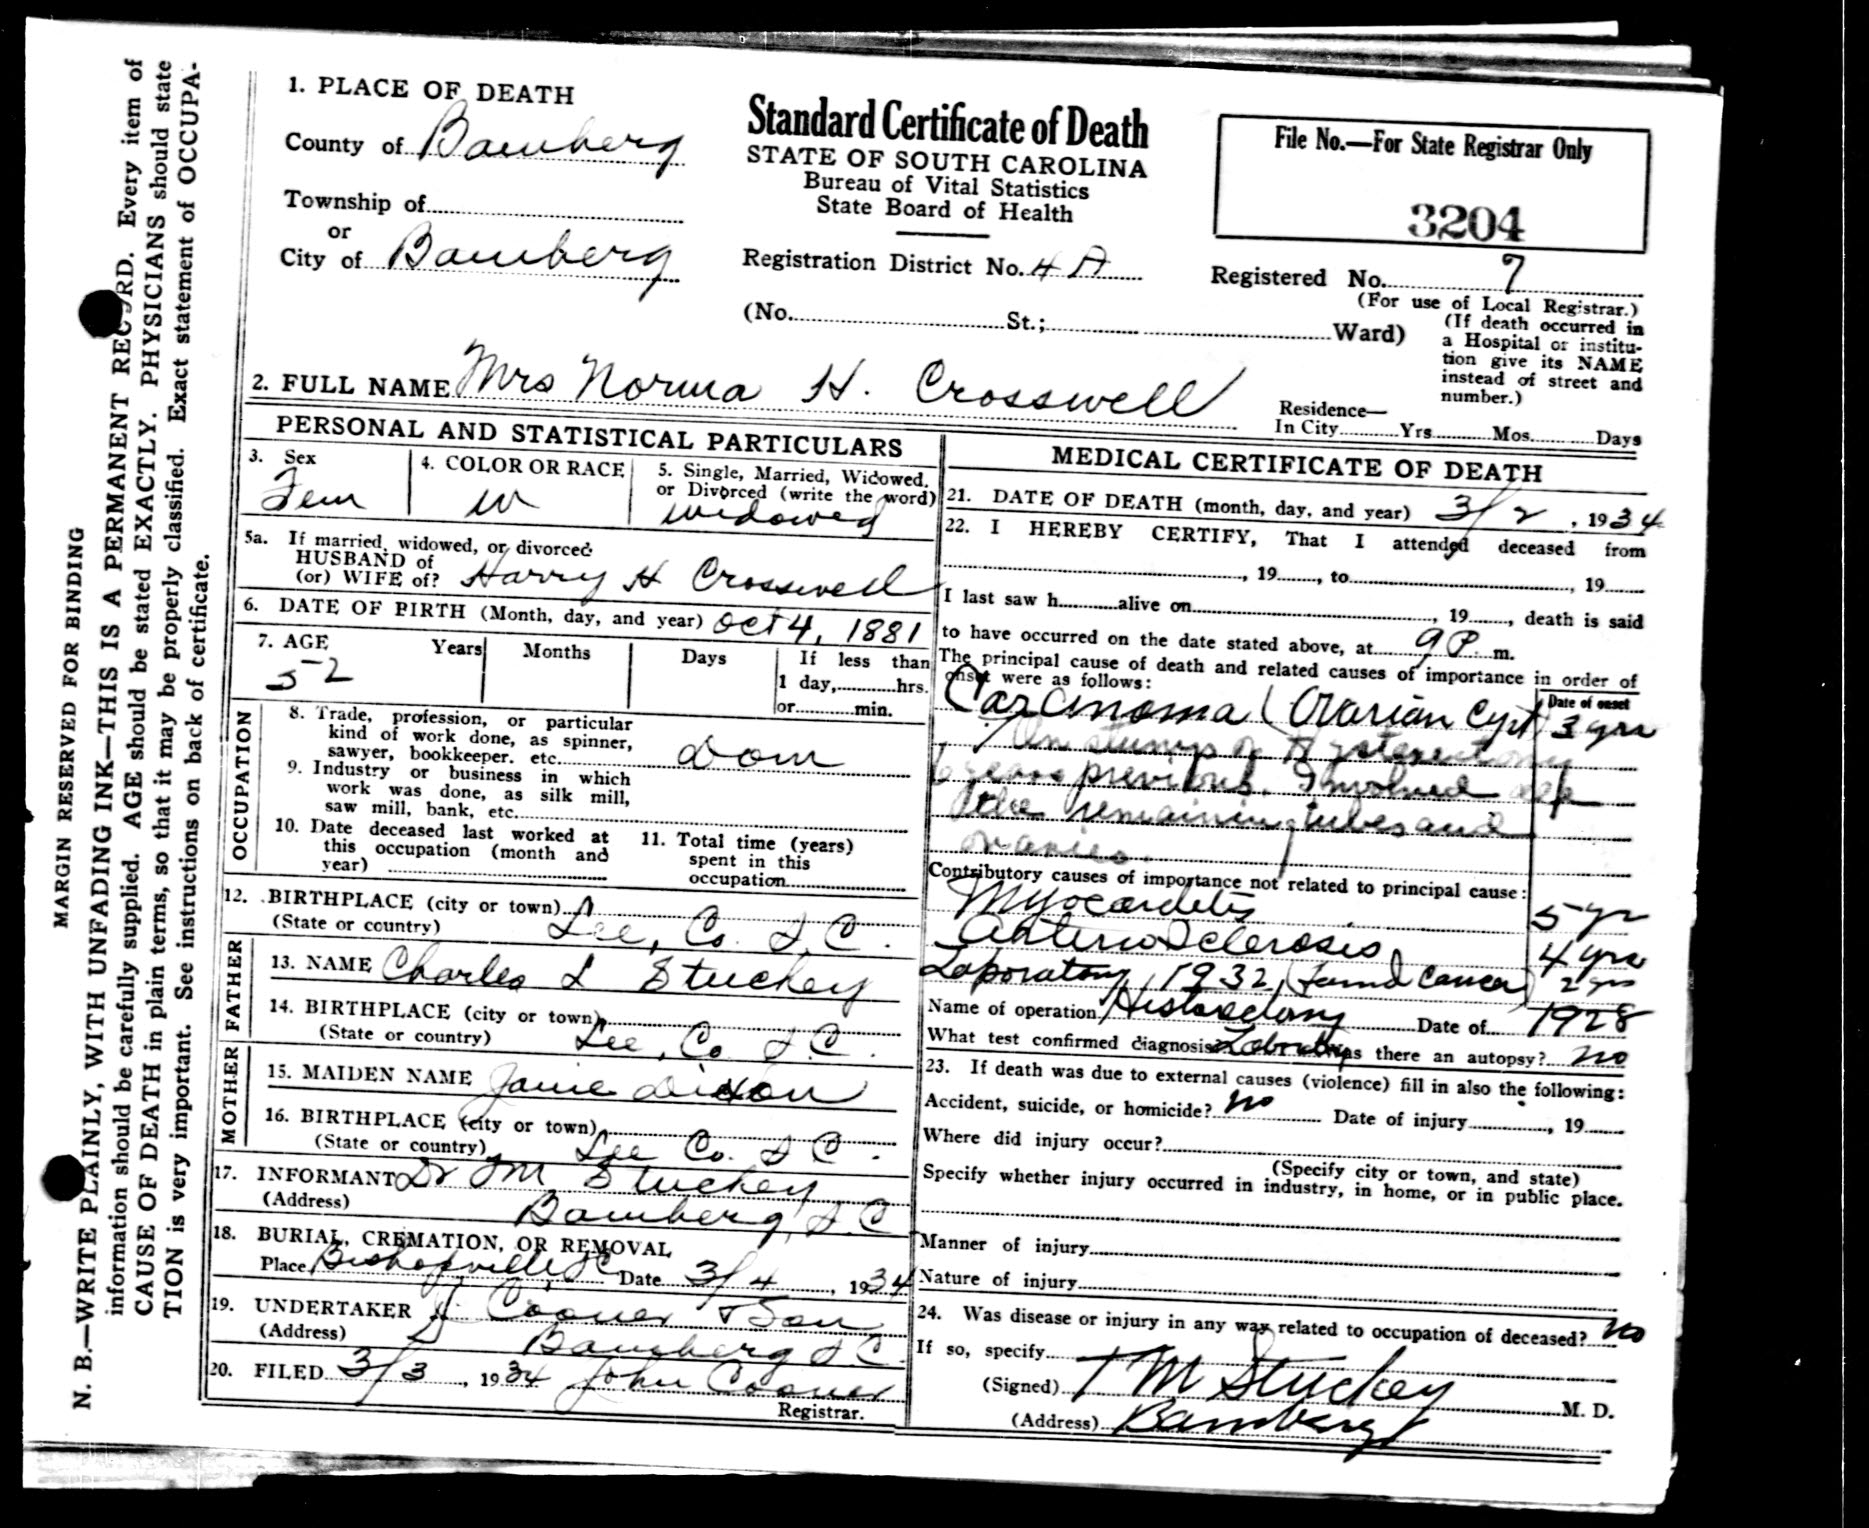 MARGIN RESERVED FOR BINDING
N. B.—WRITE PLAINLY, WITH UNFADING INK—THIS IS A PERMANENT RECORD. Every item of
information should be carefully supplied. AGE should be stated EXACTLY. PHYSICIANS should state
CAUSE OF DEATH in plain terms, so that it may be properly classified. Exact statement of OCCUPA-
TION is very important. See instructions on back of certificate.
1. PLACE OF DEATH
County of Bamberg
Township of
or
City of Bamberg
Standard Certificate of Death
STATE OF SOUTH CAROLINA
Bureau of Vital Statistics
State Board of Health
Registration District No. 4 A
(No. St.; Ward)
File No.—For State Registrar Only
3204
Registered No. 7
(For use of Local Registrar.)
(If death occurred in
a Hospital or institu-
tion give its NAME
instead of street and
number.)
2. FULL NAME Mrs Norma H. Crosswell
Residence—
In City Yrs. Mos. Days
PERSONAL AND STATISTICAL PARTICULARS
3. Sex
Fem
4. COLOR OR RACE
W
5. Single, Married, Widowed,
or Divorced (write the word)
Widowed
5a. If married, widowed, or divorced
HUSBAND of
(or) WIFE of? Harry H Crosswell
6. DATE OF BIRTH (Month, day, and year) Oct 4, 1881
7. AGE Years Months Days If less than
52
1 day, hrs.
or min.
OCCUPATION
8. Trade, profession, or particular
kind of work done, as spinner,
sawyer, bookkeeper, etc. Dom
9. Industry or business in which
work was done, as silk mill,
saw mill, bank, etc.
10. Date deceased last worked at
this occupation (month and
year)
11. Total time (years)
spent in this
occupation
12. BIRTHPLACE (city or town)
(State or country) Lee, Co. S.C.
FATHER
13. NAME Charles L Stuckey
14. BIRTHPLACE (city or town)
(State or country) Lee, Co. S.C.
MOTHER
15. MAIDEN NAME Janie Dixon
16. BIRTHPLACE (city or town)
(State or country) Lee Co. S C.
17. INFORMANT Dr T M Stuckey
(Address) Bamberg, S.C.
18. BURIAL, CREMATION, OR REMOVAL
Place Bishopville SC Date 3/4, 1934
19. UNDERTAKER J. Cooner & Son
(Address) Bamberg S.C.
20. FILED 3/3, 1934 John Cooner
Registrar.
MEDICAL CERTIFICATE OF DEATH
21. DATE OF DEATH (month, day, and year) 3/2, 1934
22. I HEREBY CERTIFY, That I attended deceased from
, 19 , to , 19
I last saw h alive on , 19 , death is said
to have occurred on the date stated above, at 9 P. m.
The principal cause of death and related causes of importance in order of
onset were as follows:
Date of onset
Carcinoma (Ovarian Cyst) 3 yrs
On stump of Hysterectomy
years previous. Involved
the remaining tubes and
ovaries.
Contributory causes of importance not related to principal cause:
Myocarditis 5 yr
Arterio Sclerosis 4 yrs
Laboratory, 1932, (found Cancer) 2 yrs
Name of operation Historectomy Date of 1928
What test confirmed diagnosis Laboratory Was there an autopsy? No
23. If death was due to external causes (violence) fill in also the following:
Accident, suicide, or homicide? No Date of injury , 19
Where did injury occur?
(Specify city or town, and state)
Specify whether injury occurred in industry, in home, or in public place.
Manner of injury
Nature of injury
24. Was disease or injury in any way related to occupation of deceased? No
If so, specify
(Signed) T M Stuckey M. D.
(Address) Bamberg